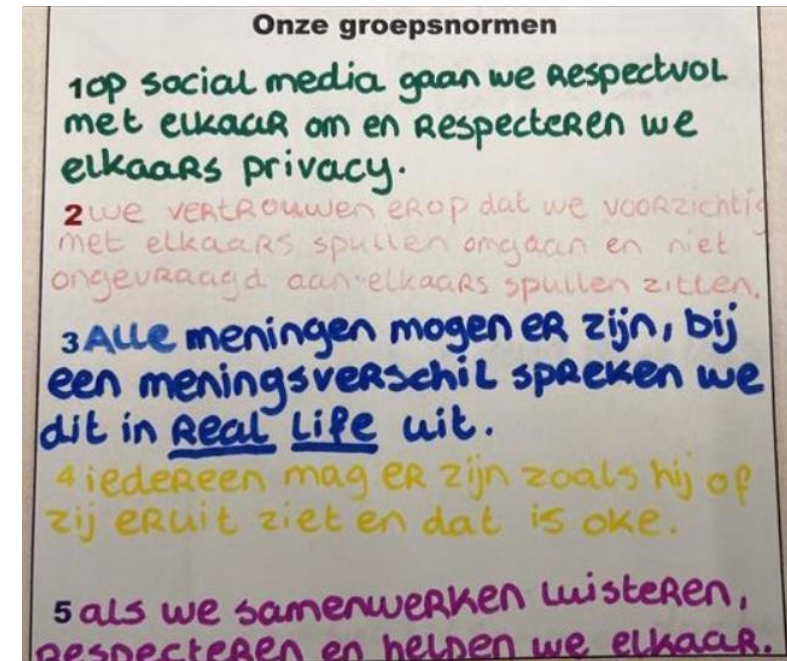 Onze groepsnormen
1 op social media gaan we Respectvol
met elkaar om en Respecteren we
elkaars privacy.
2 we vertrouwen erop dat we voorzichtig
met elkaars spullen omgaan en niet
ongevraagd aan elkaars spullen zitten.
3 Alle meningen mogen er zijn, bij
een meningsverschil spreken we
dit in Real Life uit.
4 iedereen mag er zijn zoals hij of
zij eruit ziet en dat is oke.
5 als we samenwerken luisteren,
respecteren en helpen we elkaar.